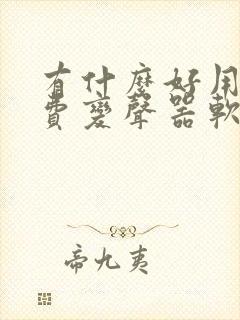 有什麼好用
費變聲器軟
帝九夷